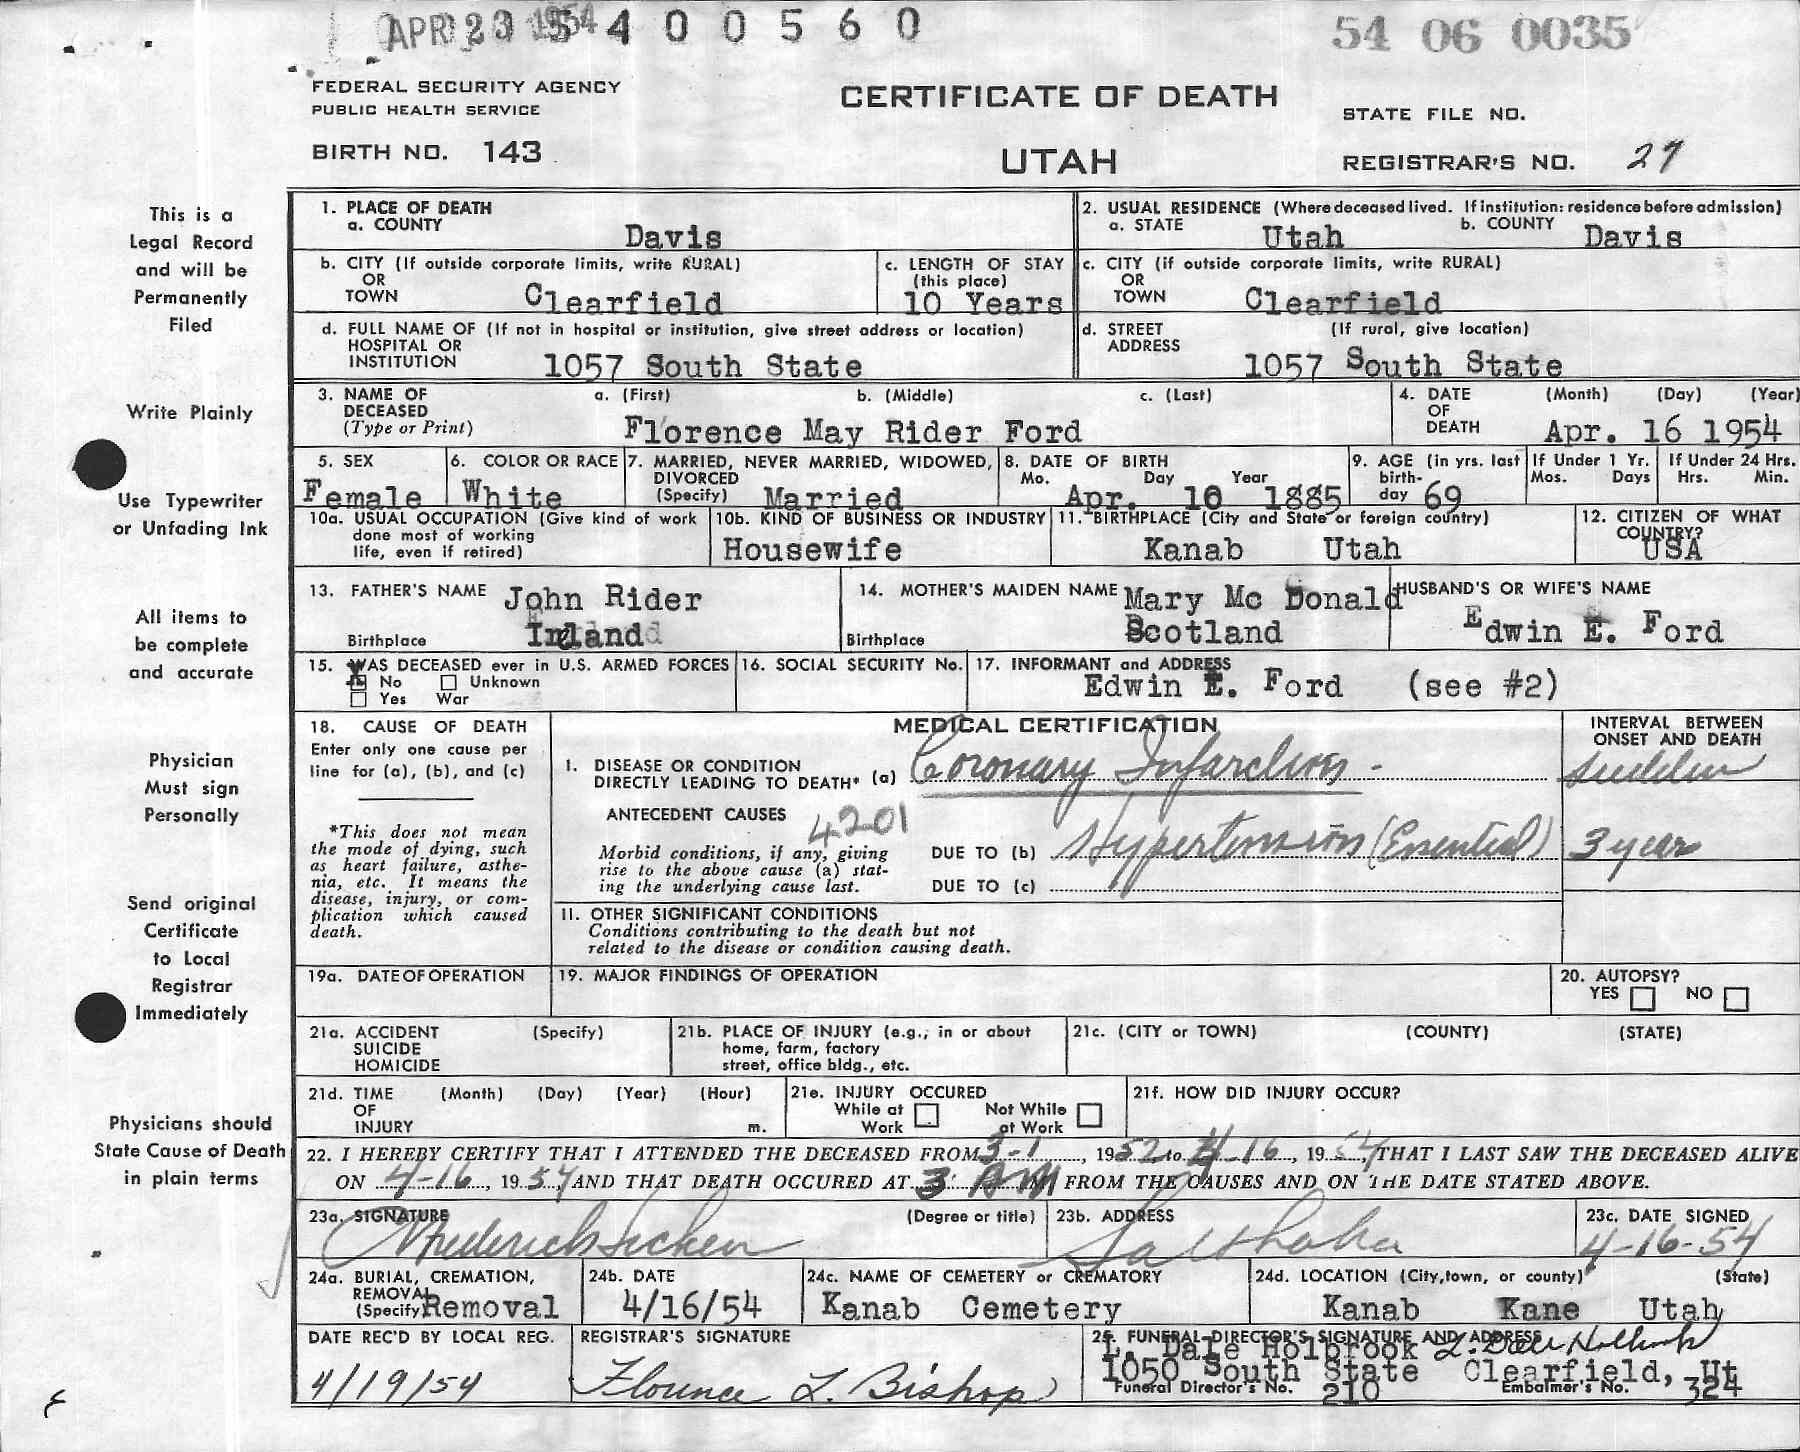 APR 23 1954 5 4 0 0 5 6 0
54 06 0035
FEDERAL SECURITY AGENCY
PUBLIC HEALTH SERVICE
BIRTH NO. 143
CERTIFICATE OF DEATH
UTAH
STATE FILE NO.
REGISTRAR'S NO. 27
This is a
Legal Record
and will be
Permanently
Filed
Write Plainly
Use Typewriter
or Unfading Ink
All items to
be complete
and accurate
Physician
Must sign
Personally
Send original
Certificate
to Local
Registrar
Immediately
Physicians should
State Cause of Death
in plain terms
1. PLACE OF DEATH
a. COUNTY Davis
2. USUAL RESIDENCE (Where deceased lived. If institution: residence before admission)
a. STATE Utah b. COUNTY Davis
b. CITY (If outside corporate limits, write RURAL)
OR
TOWN Clearfield
c. LENGTH OF STAY
(this place)
10 Years
c. CITY (if outside corporate limits, write RURAL)
OR
TOWN Clearfield
d. FULL NAME OF (If not in hospital or institution, give street address or location)
HOSPITAL OR
INSTITUTION 1057 South State
d. STREET (If rural, give location)
ADDRESS
1057 South State
3. NAME OF a. (First) b. (Middle) c. (Last)
DECEASED
(Type or Print) Florence May Rider Ford
4. DATE (Month) (Day) (Year)
OF
DEATH Apr. 16 1954
5. SEX
Female
6. COLOR OR RACE
White
7. MARRIED, NEVER MARRIED, WIDOWED,
DIVORCED
(Specify) Married
8. DATE OF BIRTH
Mo. Day Year
Apr. 10 1885
9. AGE (in yrs. last
birth-
day 69
If Under 1 Yr.
Mos. Days
If Under 24 Hrs.
Hrs. Min.
10a. USUAL OCCUPATION (Give kind of work
done most of working
life, even if retired)
10b. KIND OF BUSINESS OR INDUSTRY
Housewife
11. BIRTHPLACE (City and State or foreign country)
Kanab Utah
12. CITIZEN OF WHAT
COUNTRY?
USA
13. FATHER'S NAME John Rider
Birthplace Ireland
14. MOTHER'S MAIDEN NAME Mary Mc Donald
Birthplace Scotland
HUSBAND'S OR WIFE'S NAME
Edwin E. Ford
15. WAS DECEASED ever in U.S. ARMED FORCES
X No Unknown
Yes War
16. SOCIAL SECURITY No.
17. INFORMANT and ADDRESS
Edwin E. Ford (see #2)
18. CAUSE OF DEATH
Enter only one cause per
line for (a), (b), and (c)
*This does not mean
the mode of dying, such
as heart failure, asthe-
nia, etc. It means the
disease, injury, or com-
plication which caused
death.
MEDICAL CERTIFICATION
INTERVAL BETWEEN
ONSET AND DEATH
I. DISEASE OR CONDITION
DIRECTLY LEADING TO DEATH* (a) Coronary Infarction - sudden
ANTECEDENT CAUSES
4201
Morbid conditions, if any, giving
rise to the above cause (a) stat-
ing the underlying cause last.
DUE TO (b) Hypertension (Essential) 3 years
DUE TO (c)
II. OTHER SIGNIFICANT CONDITIONS
Conditions contributing to the death but not
related to the disease or condition causing death.
19a. DATE OF OPERATION
19. MAJOR FINDINGS OF OPERATION
20. AUTOPSY?
YES NO
21a. ACCIDENT (Specify)
SUICIDE
HOMICIDE
21b. PLACE OF INJURY (e.g., in or about
home, farm, factory
street, office bldg., etc.
21c. (CITY or TOWN) (COUNTY) (STATE)
21d. TIME (Month) (Day) (Year) (Hour)
OF
INJURY m.
21e. INJURY OCCURED
While at Not While
Work at Work
21f. HOW DID INJURY OCCUR?
22. I HEREBY CERTIFY THAT I ATTENDED THE DECEASED FROM 3-1, 1952 to 4-16, 1954, THAT I LAST SAW THE DECEASED ALIVE
ON 4-16, 1954 AND THAT DEATH OCCURED AT 3 M FROM THE CAUSES AND ON THE DATE STATED ABOVE.
23a. SIGNATURE (Degree or title)
23b. ADDRESS
23c. DATE SIGNED
4-16-54
24a. BURIAL, CREMATION,
REMOVAL
(Specify) Removal
24b. DATE
4/16/54
24c. NAME OF CEMETERY or CREMATORY
Kanab Cemetery
24d. LOCATION (City, town, or county) (State)
Kanab Kane Utah
DATE REC'D BY LOCAL REG.
4/19/54
REGISTRAR'S SIGNATURE
Florence L. Bishop
25. FUNERAL DIRECTOR'S SIGNATURE AND ADDRESS
L. Dale Holbrook L. Dale Holbrook
1050 South State Clearfield, Ut
Funeral Director's No. 210 Embalmer's No. 324